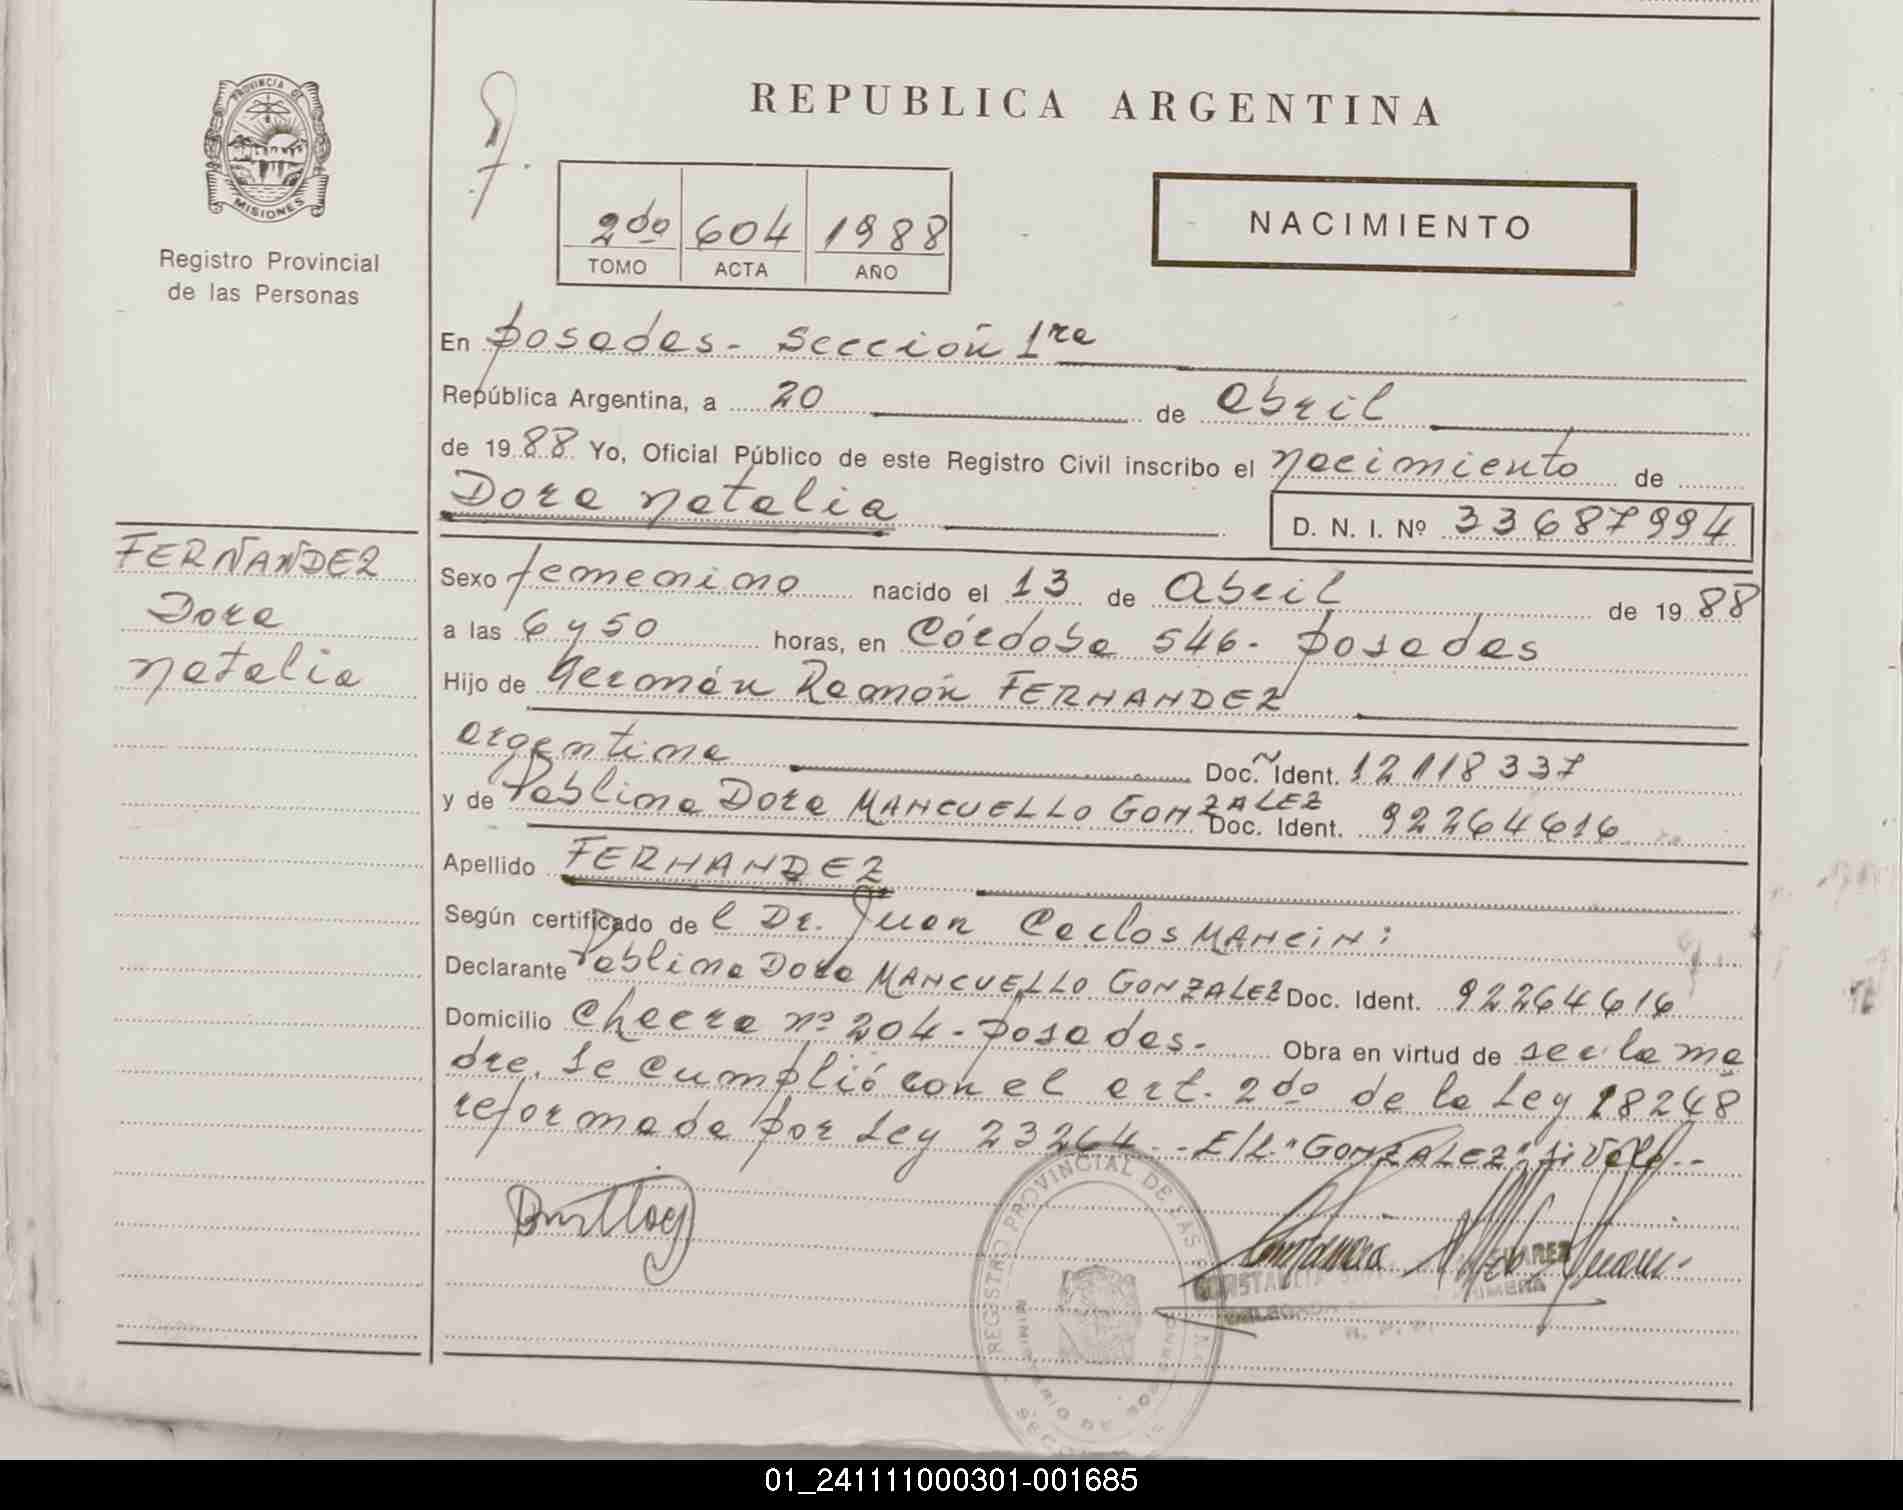 PROVINCIA DE
MISIONES
Registro Provincial
de las Personas
REPUBLICA ARGENTINA
2do 604 1988
TOMO ACTA AÑO
NACIMIENTO
En Posadas - Sección 1ra
República Argentina, a 20 de Abril
de 1988 Yo, Oficial Público de este Registro Civil inscribo el nacimiento de
Dora Natalia
D. N. I. Nº 33687994
FERNANDEZ
Dora
Natalia
Sexo femenino nacido el 13 de Abril de 1988
a las 6 y 50 horas, en Córdoba 546 - Posadas
Hijo de Germán Ramón FERNANDEZ
argentina Doc. Ident. 12118337
y de Pablina Dora MANCUELLO GONZALEZ Doc. Ident. 92264616
Apellido FERNANDEZ
Según certificado de l Dr. Juan Carlos MANCINi
Declarante Pablina Dora MANCUELLO GONZALEZ Doc. Ident. 92264616
Domicilio Checra nº 204 - Posadas. Obra en virtud de ser la ma
dre. Se cumplió con el art. 2do de la Ley 18248
reformada por Ley 23264 -- E/L "GONZALEZ" si vale --
REGISTRO PROVINCIAL DE LAS
MINISTERIO DE
01_241111000301-001685